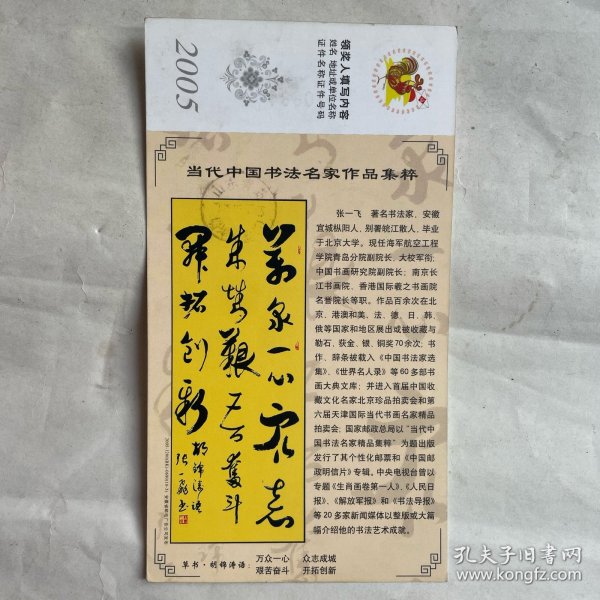 领奖人填写内容
姓名 地址或单位名称
证件名称证件号码
2005
当代中国书法名家作品集粹
万众一心众志
成城艰苦奋斗
开拓创新
胡锦涛语
张一飞书
张一飞 著名书法家，安徽
宣城枞阳人，别署皖江散人，毕业
于北京大学。现任海军航空工程
学院青岛分院副院长，大校军衔；
中国书画研究院副院长；南京长
江书画院、香港国际羲之书画院
名誉院长等职。作品百余次在北
京、港澳和美、法、德、日、韩、
俄等国家和地区展出或被收藏与
勒石，获金、银、铜奖70余次；书
作、辞条被载入《中国书法家选
集》、《世界名人录》等60多部书
画大典文库；并进入首届中国收
藏文化名家北京珍品拍卖会和第
六届天津国际当代书画名家精品
拍卖会；国家邮政总局以“当代中
国书法名家精品集粹”为题出版
发行了其个性化邮票和《中国邮
政明信片》专辑。中央电视台曾以
专题《生肖画卷第一人》、《人民日
报》、《解放军报》和《书法导报》
等20多家新闻媒体以整版或大篇
幅介绍他的书法艺术成就。
草书·胡锦涛语：
万众一心 众志成城
艰苦奋斗 开拓创新
孔夫子旧书网
www.kongfz.com